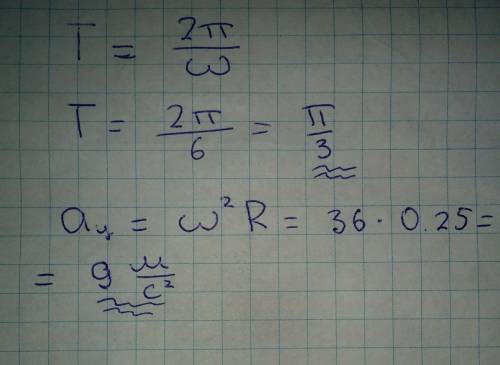 T = 2π/ω
T = 2π/6 = π/3
aц = ω²R = 36 · 0.25 =
= 9 м/с²